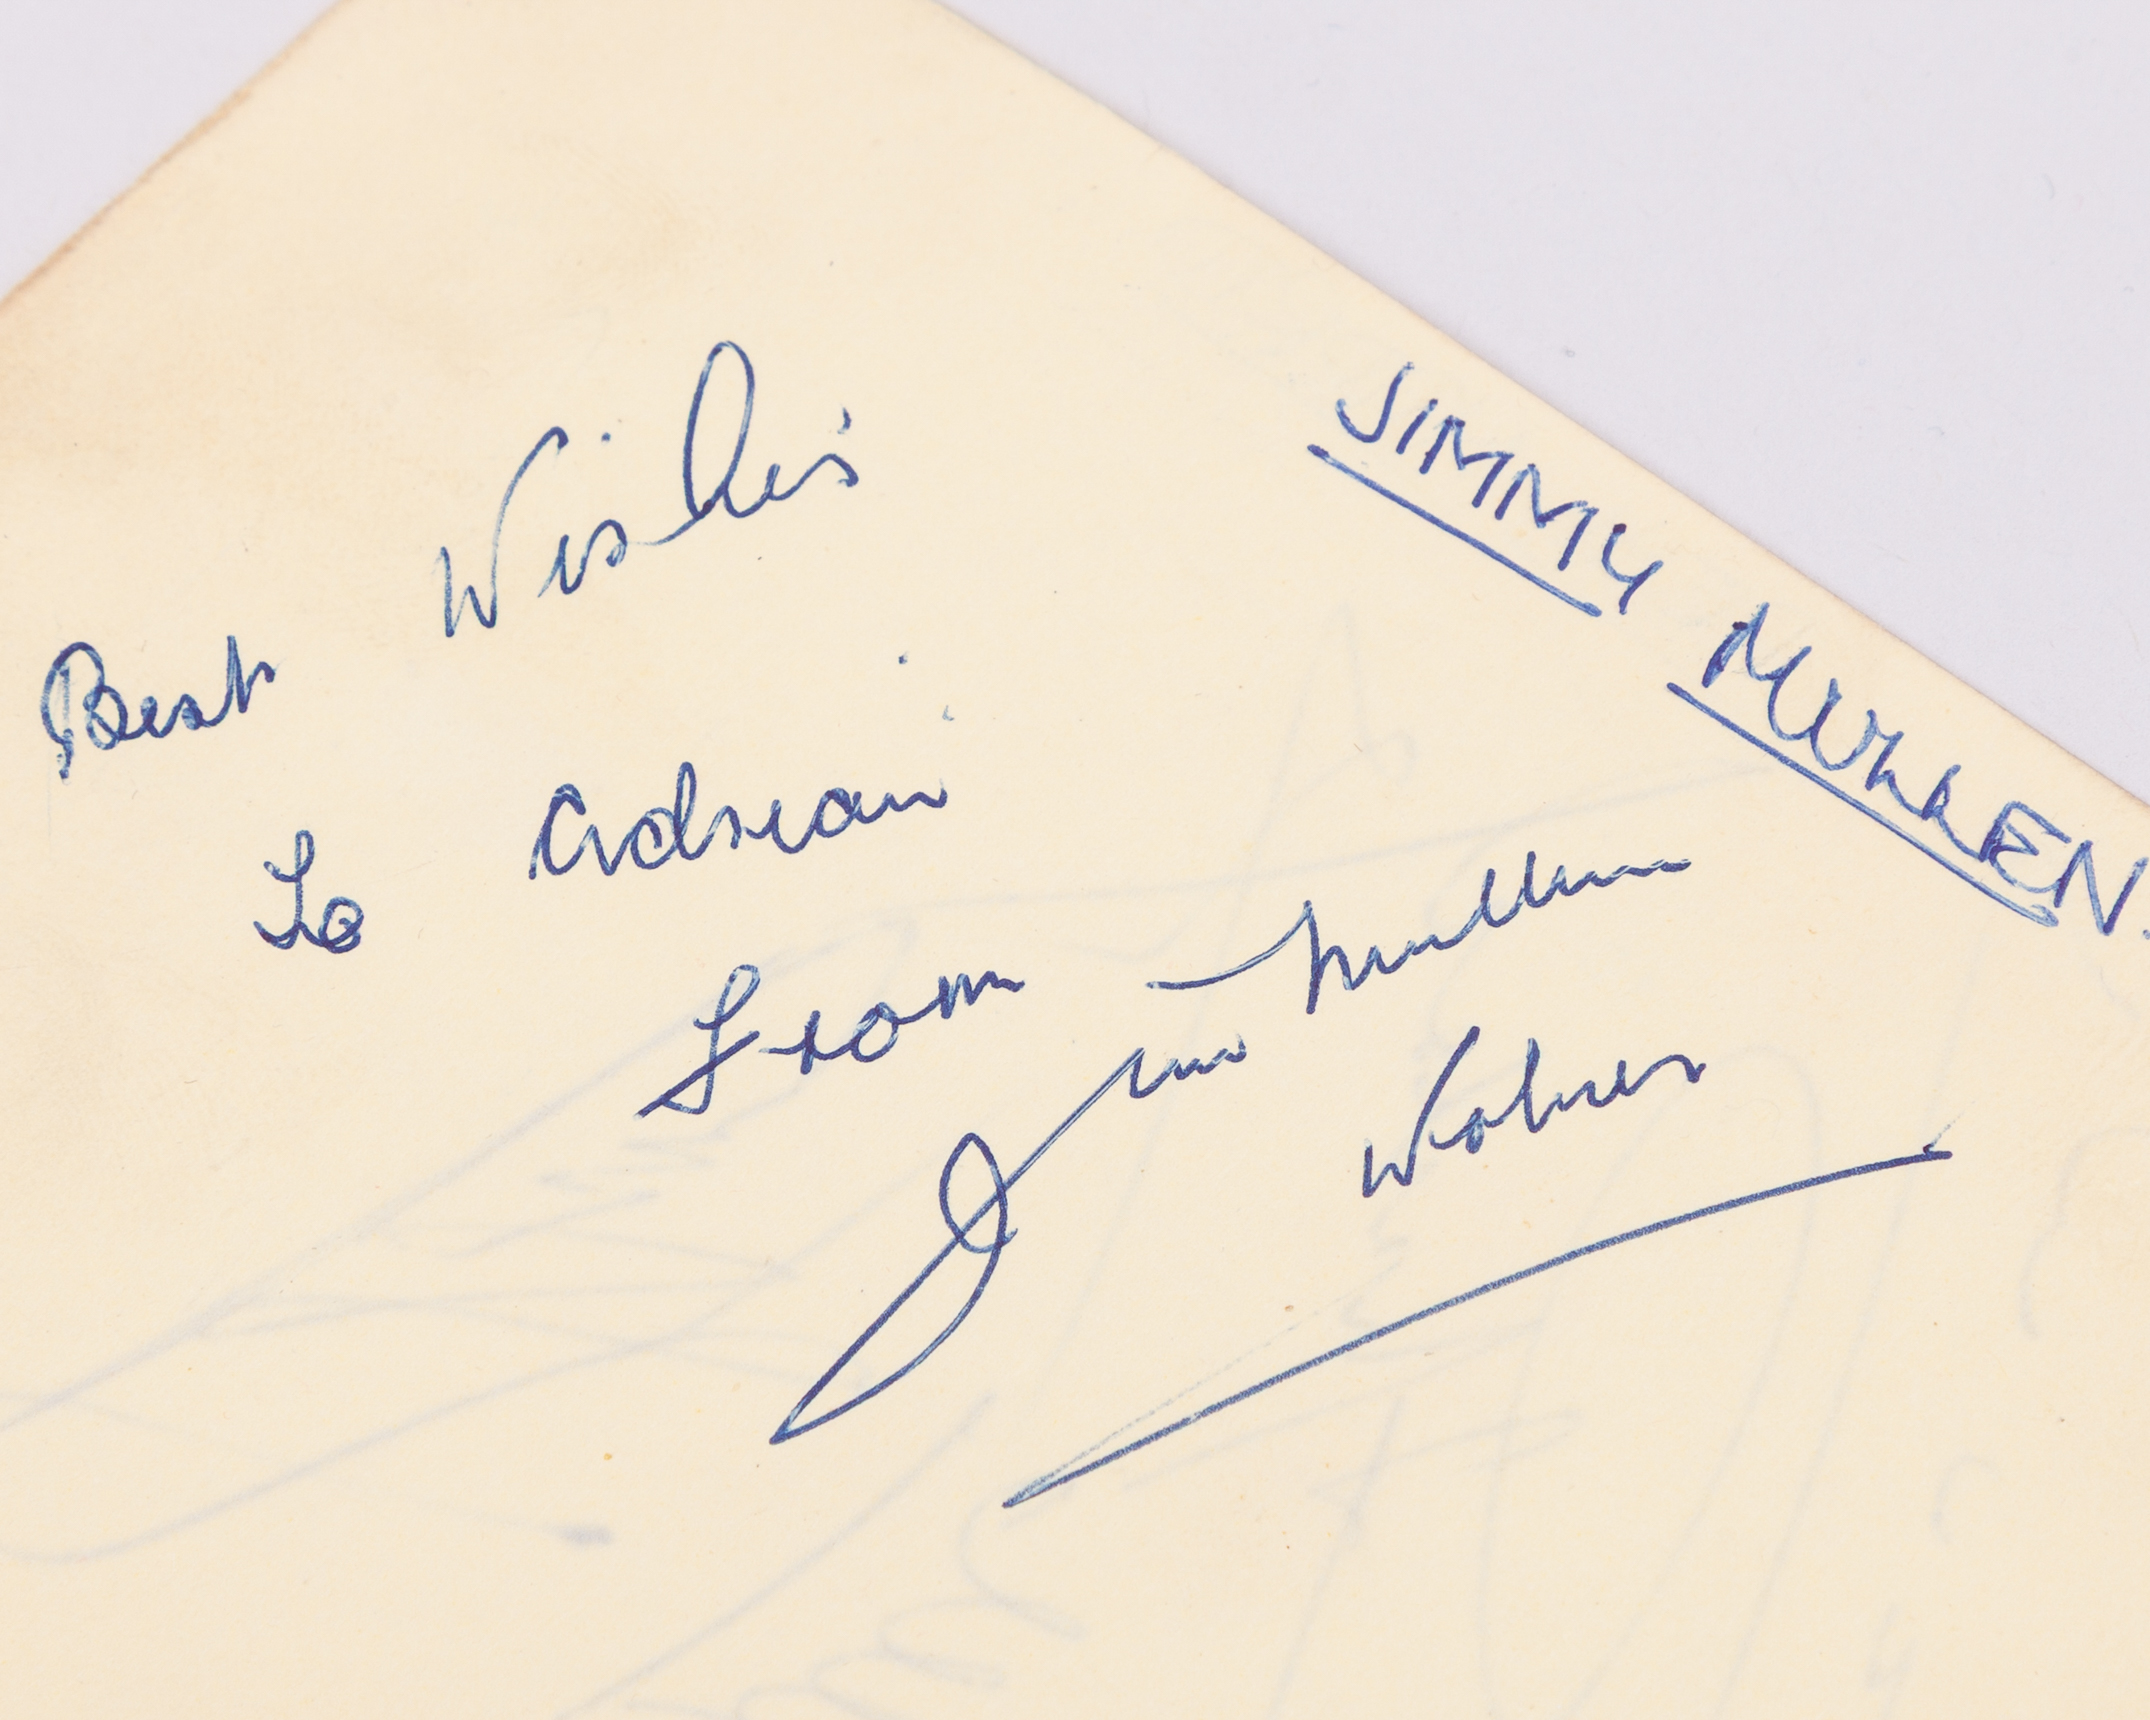 Best Wishes
To Adrian
From
Jim Mullen
Wolves
JIMMY MULLEN.